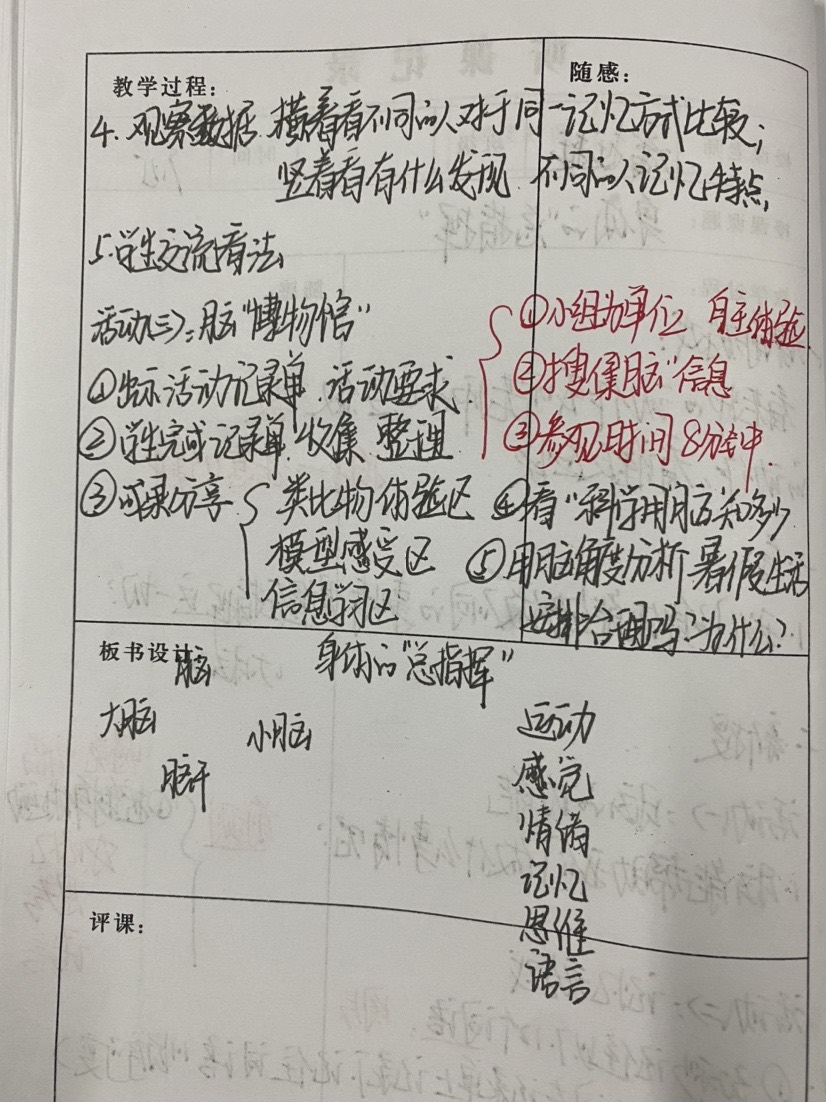 教学过程：
随感：
4. 观察数据 横着看不同的人对于同一记忆方式比较；
竖着看有什么发现 不同的人记忆特点，
5. 学生交流看法
活动(三)：脑"博物馆"
①出示活动记录单、活动要求
②学生完成记录单 收集 整理
③成果分享 类比物体验区
模型感受区
信息学习区
①小组为单位 自主体验
②搜集"脑"信息
③参观时间8分钟.
④看"科学用脑"知多少
⑤用脑角度分析暑假生活
安排合理吗？为什么？
板书设计：
身体的"总指挥"
脑
大脑
小脑
脑干
运动
感觉
情绪
记忆
思维
语言
评课：